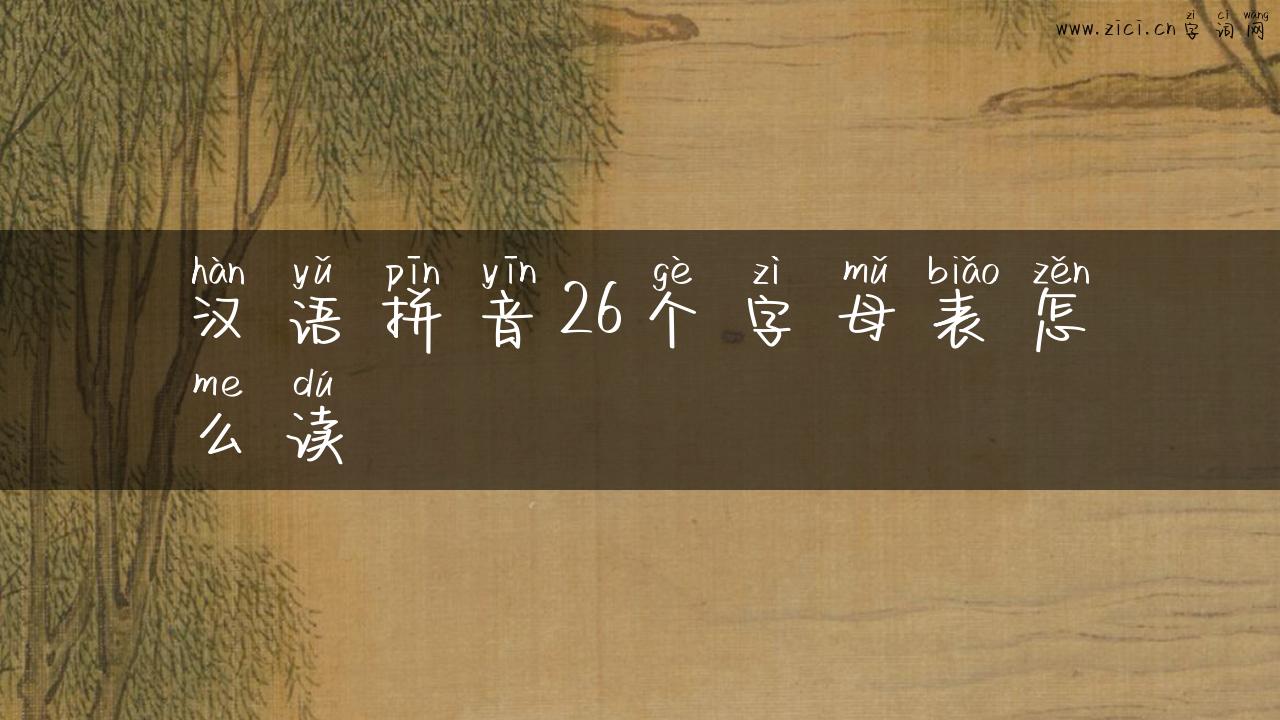 zì cí wǎng
www.zici.cn 字词网
hàn yǔ pīn yīn gè zì mǔ biǎo zěn
汉语拼音26个字母表怎
me dú
么读